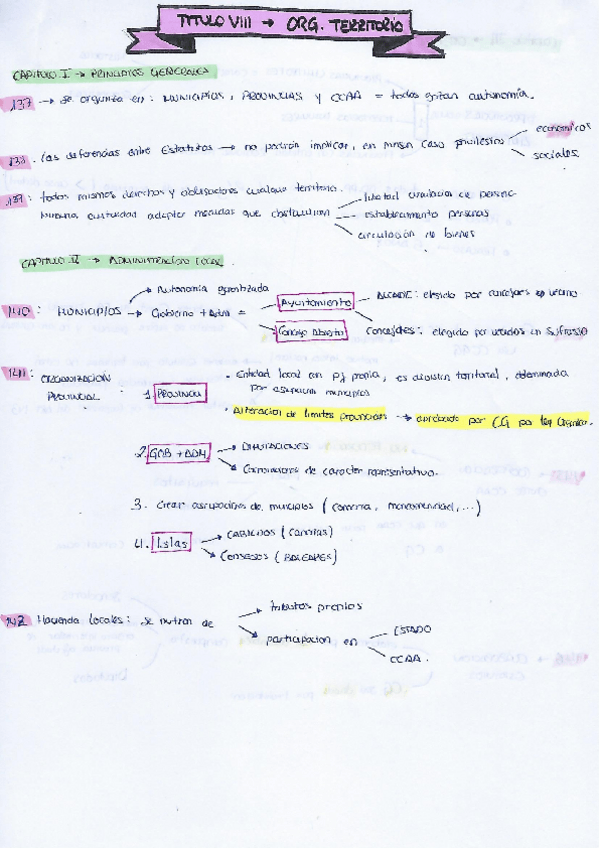 TITULO VIII → ORG. TERRITORIO
CAPITULO I → PRINCIPIOS GENERALES
137 → Se organiza en: MUNICIPIOS, PROVINCIAS y CCAA = todos gozan autonomía.
138. Las diferencias entre Estatutos → no podrán implicar, en ningún caso privilegios
económicos
sociales.
139: todos mismos derechos y obligaciones cualquier territorio.
Ninguna autoridad adoptar medidas que obstaculicen
libertad circulación de personas
establecimiento personas
circulación de bienes
CAPITULO II → ADMINISTRACION LOCAL.
140: MUNICIPIOS
→ Autonomía garantizada
→ Gobierno + Adm =
Ayuntamiento
Concejo Abierto
ALCALDE: elegido por concejales o vecinos
Concejales: elegido por vecinos en Sufragio
141: ORGANIZACION PROVINCIAL
1. PROVINCIA
- Entidad local con PJ propia, es división territorial, determinada
por agrupación municipios
- Alteración de límites provinciales → aprobado por CG por Ley Orgánica.
2. GOB + ADM.
→ DIPUTACIONES
→ Corporaciones de caracter representativo.
3. Crear agrupaciones de municipios (comarca, mancomunidad,...)
4. Islas
→ CABILDOS (Canarias)
→ CONSEJOS (BALEARES)
142 Hacienda Locales: se nutren de
→ tributos propios
→ participación en
ESTADO
CCAA.